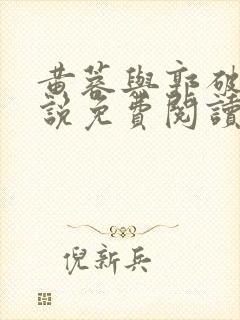 黃蓉與郭破
說免費閱讀
倪新兵